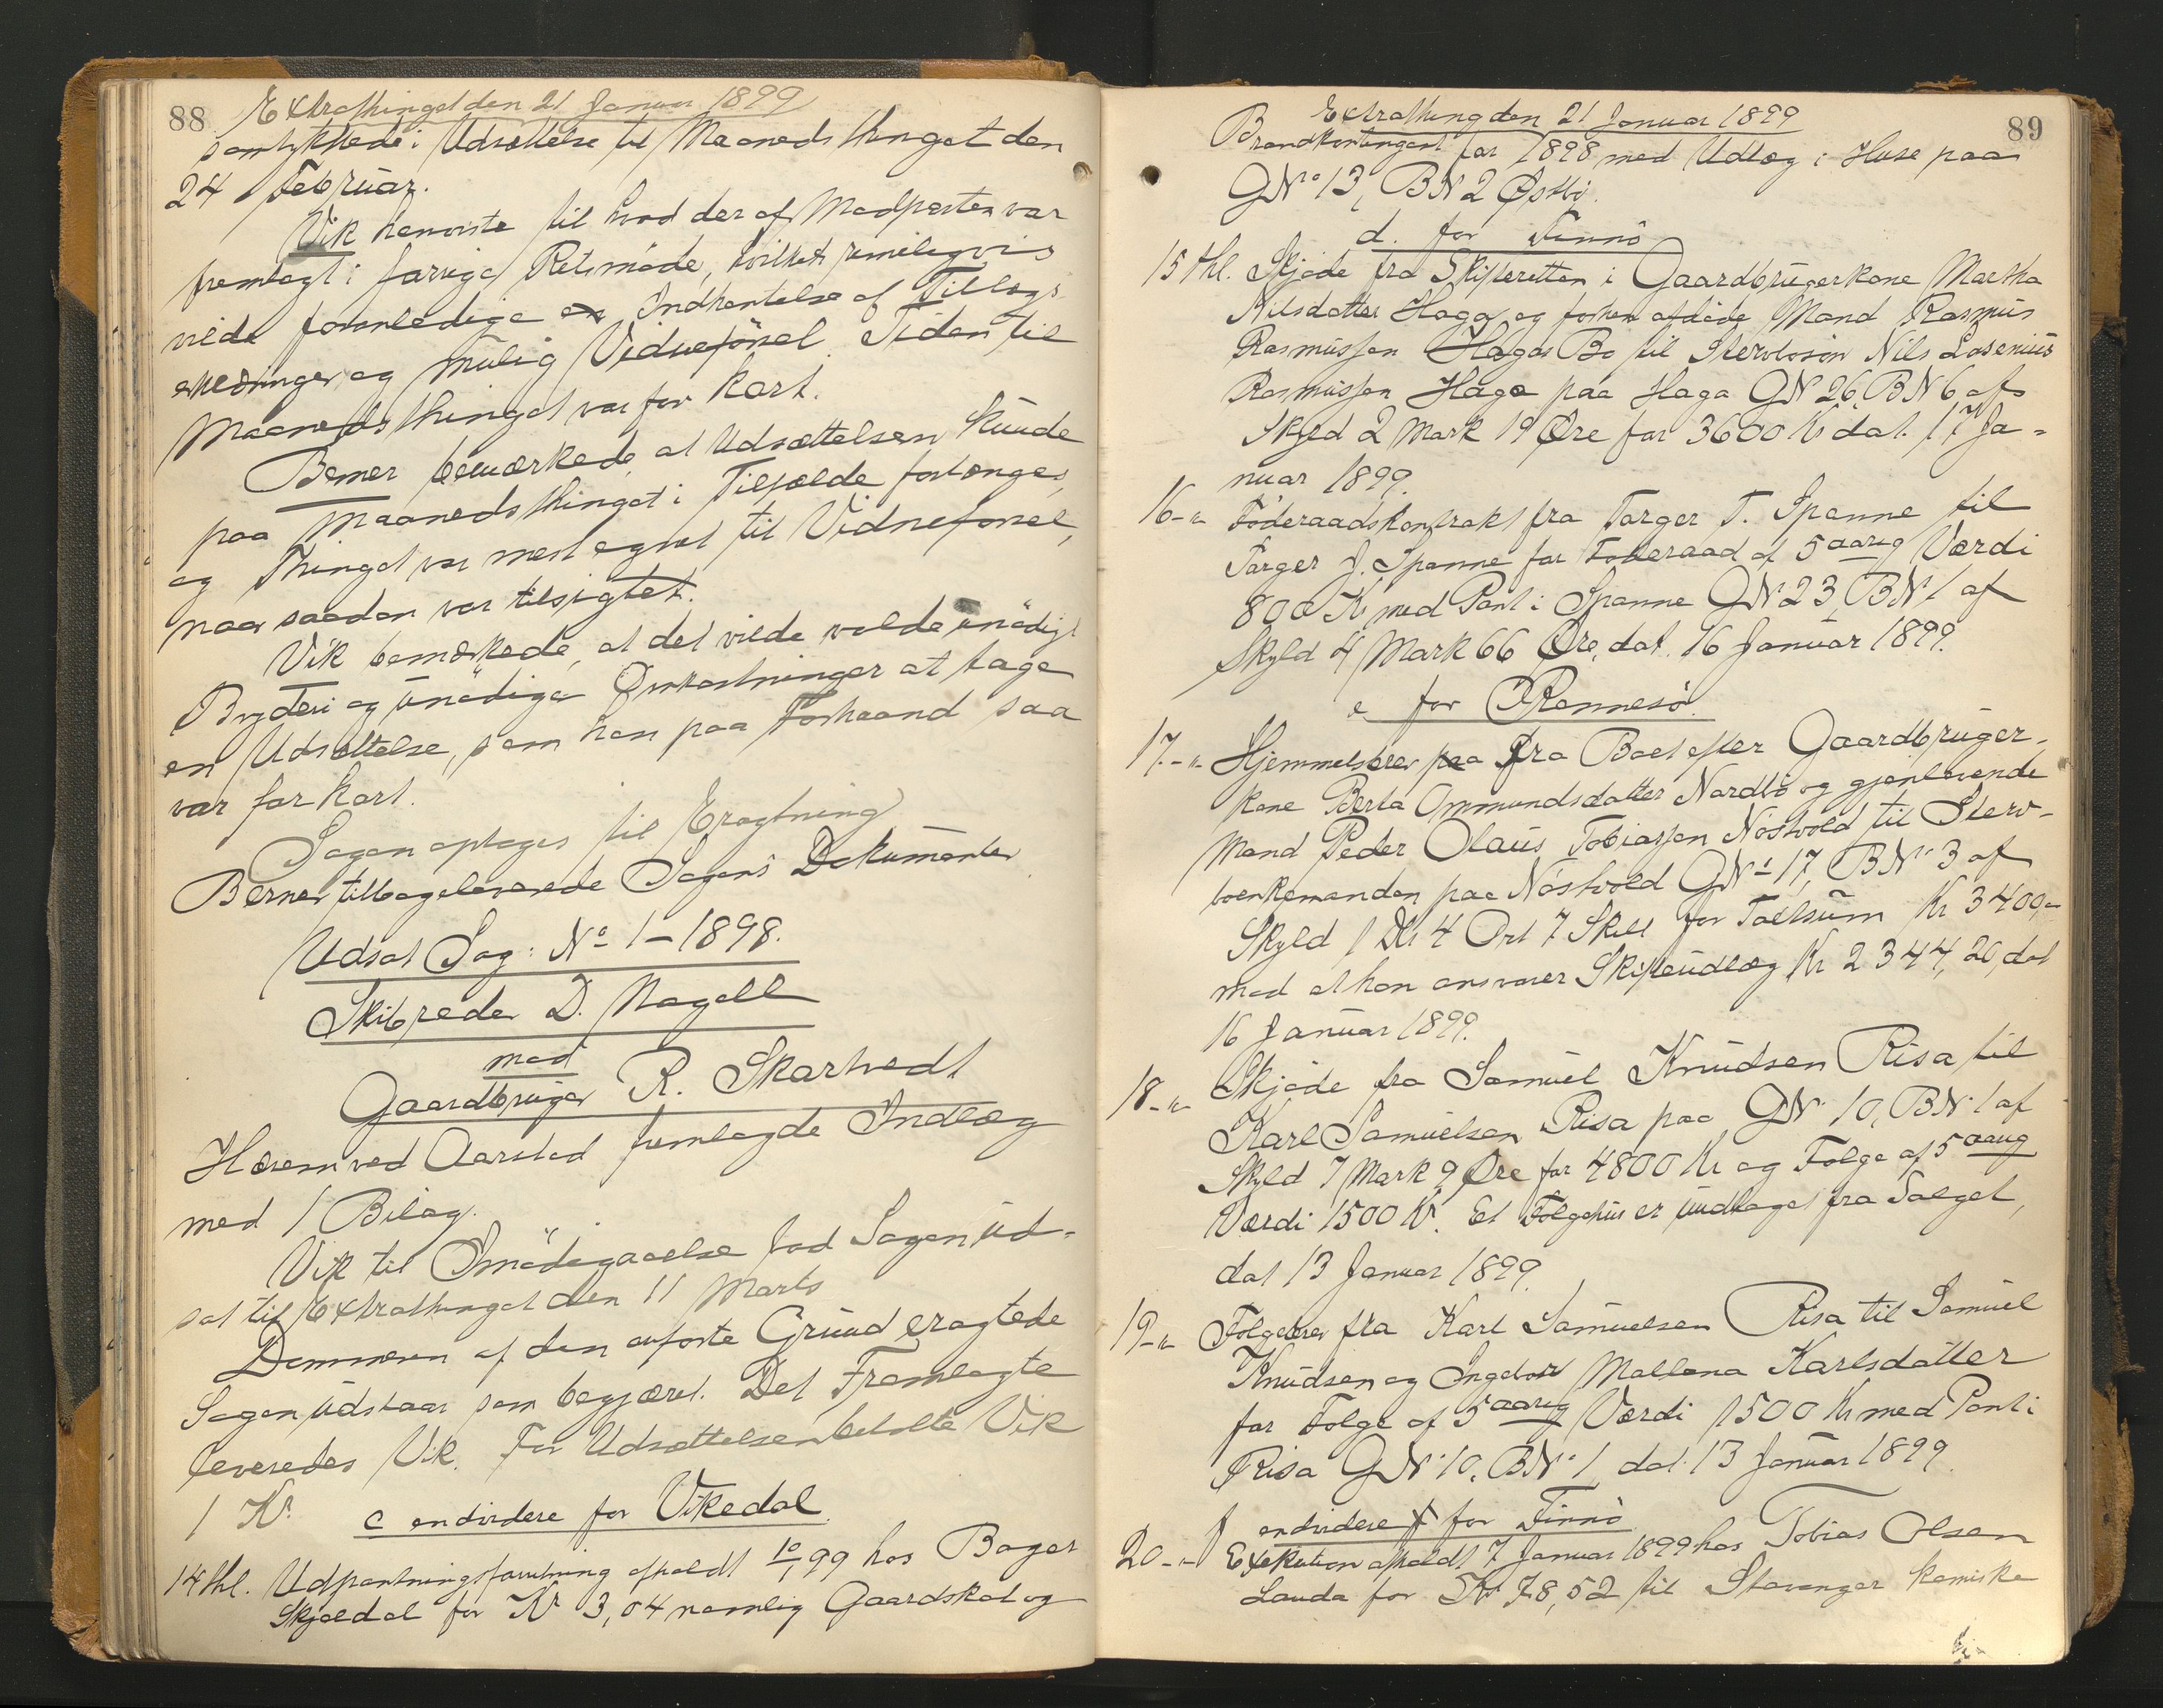 88 Extrathinget den 21 Januar 1899
samtykkede i Udsættelse til Maanedsthinget den
24 Februar.
Vik henviste til hvad der af Modparten var
fremlagt i forrige Retsmøde, hvilket rimeligvis
vilde foranledige Indhentelse af Tillægs
erklæringer og mulig Vidneførsel. Tiden til
Maanedsthinget var for kort.
Berner bemærkede, at Udsættelsen kunde
paa Maanedsthinget i Tilfælde forlænges,
og Thinget var mest egnet til Vidneførsel,
naar saadan var tilsigtet.
Vik bemærkede, at det vilde volde unødigt
Bryderi og unødige Omkostninger at tage
en Udsættelse, som han paa Forhaand saa
var for kort.
Sagen optages til Eragtning
Berner tilbageleverede Sagens Dokumenter
Udsat Sag: No 1-1898.
Skibsreder D. Nagell
mod
Gaardbruger R. Skartvedt
Hærem ved Aarstad fremlagde Indlæg
med 1 Bilag.
Vik til Imødegaaelse bad Sagen ud-
sat til Extrathinget den 11 Marts
Dommeren af den anførte Grund eragtede
Sagen udstaar som begjæret. Det Fremlagte
leveredes Vik. For Udsættelsen betalte Vik
1 Kr.
c endvidere for Vikedal
14 thl. Udpantningsforretning afholdt 10/1 99 hos Bager
Skjældal for Kr 3,04 nemlig Gaardskat og
Extrathing den 21 Januar 1899
89
Brandkontingent for 1898 med Udlæg i Huse paa
GNo 13, BN 2 Østbø.
d. for Finnø
15 thl. Skjøde fra Skifteretten i Gaardbrugerkone Martha
Nilsdatter Haga og forhen afdøde Mand Rasmus
Rasmussen Hagas Bo til Stervbosøn Nils Lasenius
Rasmussen Haga paa Haga GN 26, BN 6 af
Skyld 2 Mark 19 Øre for 3600 Kr dat. 17 Ja-
nuar 1899.
16-"- Føderaadskontrakt fra Torger T. Spanne til
Torger J. Spanne for Føderaad af 5 aarig Værdi
800 Kr med Pant i Spanne GN 23, BN 1 af
Skyld 4 Mark 66 Øre, dat. 16 Januar 1899.
e for Rennesø.
17.-"- Hjemmelsbrev paa fra Boet efter Gaardbruger-
kone Berta Ommundsdatter Nordbø og gjenlevende
Mand Peder Olaus Tobiassen Nøstvold til Sterv-
boenkemanden paa Nøstvold GNo 17, BNo 3 af
Skyld 1 Dlr 4 Ort 7 Skill for Taxtsum Kr 3400,-
mod at han ansvarer Skifteudlæg Kr 2344,20, dat
16 Januar 1899.
18-"- Skjøde fra Samuel Knudsen Risa til
Karl Samuelsen Risa paa GNo 10, BNo 1 af
Skyld 7 Mark 9 Øre for 4800 Kr og Følge af 5 aarig
Værdi 1500 Kr. Et Følgehus er undtaget fra Salget,
dat 13 Januar 1899.
19-"- Følgebrev fra Karl Samuelsen Risa til Samuel
Knudsen og Ingebor Mallena Karlsdatter
for Følge af 5 aarig Værdi 1500 Kr med Pant i
Risa GNo 10, BNo 1, dat. 13 Januar 1899.
f endvidere for Finnø
20-"- Exekution afholdt 7 Januar 1899 hos Tobias Olsen
Lauda for Kr 78,52 til Stavanger kemiske